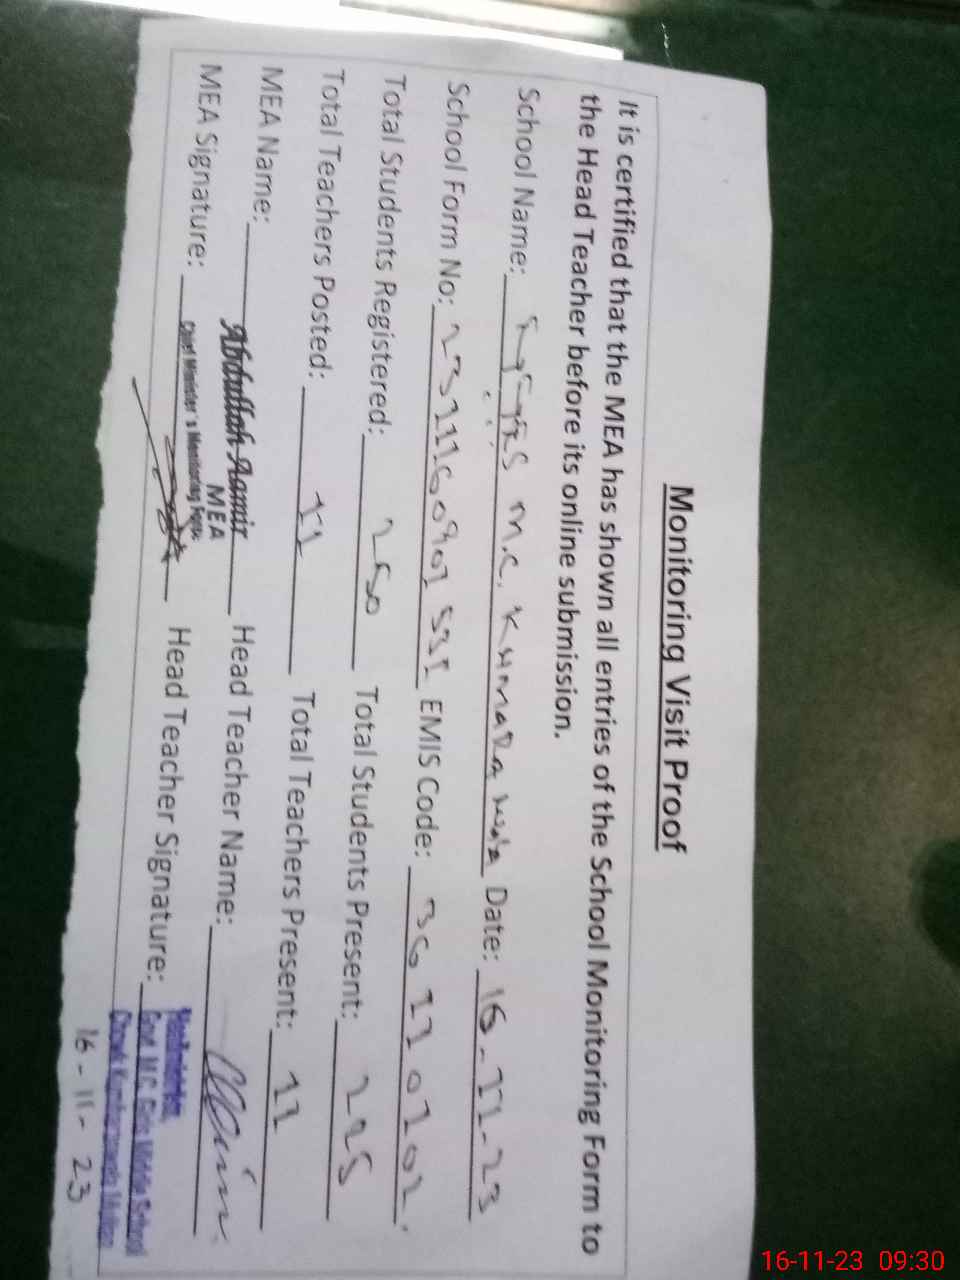 Monitoring Visit Proof
It is certified that the MEA has shown all entries of the School Monitoring Form to
the Head Teacher before its online submission.
School Name: M.C. Date: 16-11-23
School Form No: EMIS Code:
Total Students Registered: 250 Total Students Present: 225
Total Teachers Posted: 11 Total Teachers Present: 11
MEA Name: Abdullah Aamir Head Teacher Name:
MEA
MEA Signature: Chief Minister's Monitoring Force Head Teacher Signature:
Headmistress
Govt. M.C. Girls Middle School
Chowk Kumharanwala Multan
16-11-23
16-11-23 09:30